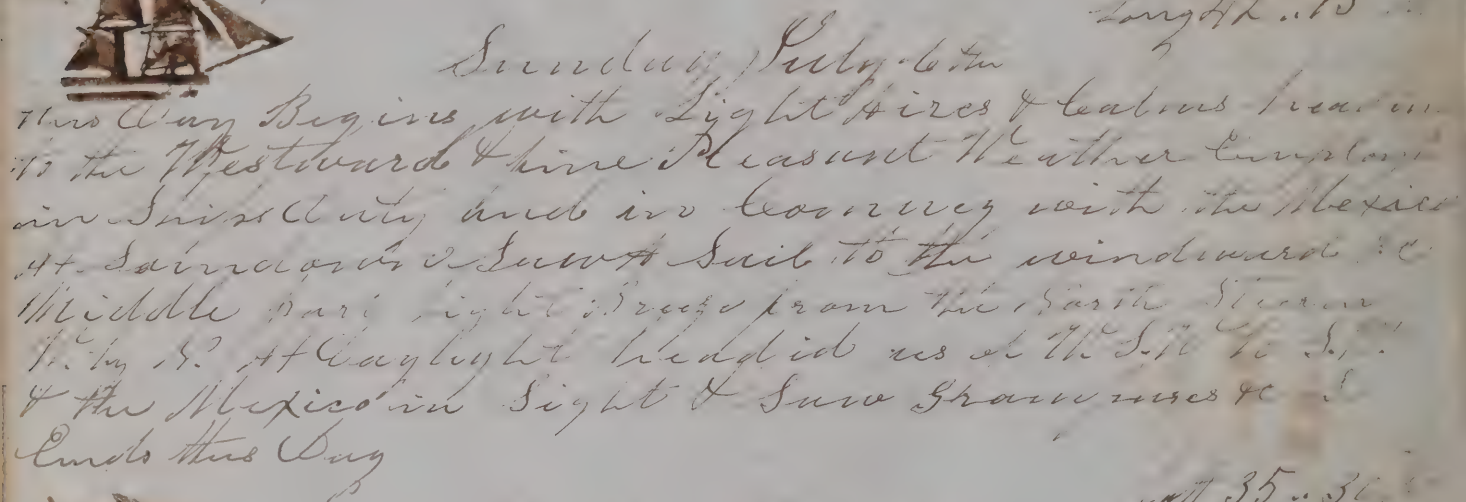 Longt 42..13
Sunday July 6th
This Day Begins with Light Aires & Calms heading
to the Westward & fine Pleasant Weather Employed
in Ships Duty and in Company with the Mexico
At Saindown Saw A Sail to the windward &c
Middle Part Light Breeze from the North Steering
W. by N. At Daylight headed us of
& the Mexico in Sight & Saw Grampuses &c S
Ends this Day
Latt 35..